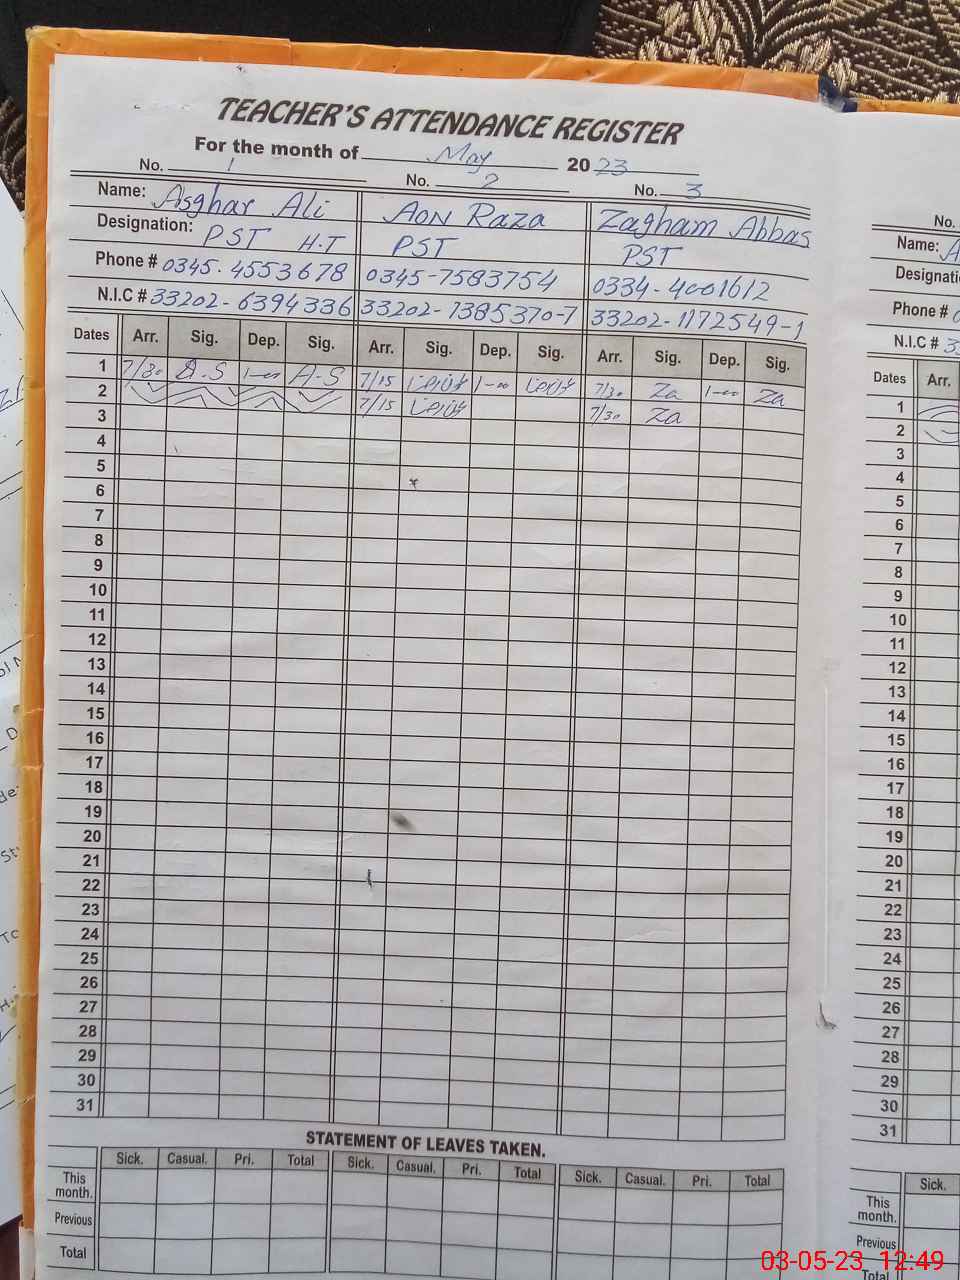 TEACHER'S ATTENDANCE REGISTER
For the month of May 2023
No. 1 No. 2 No. 3
Name: Asghar Ali Aon Raza Zagham Abbas
Designation: PST H.T PST PST
Phone # 0345.4553678 0345-7583754 0334-4001612
N.I.C # 33202-6394336 33202-1385370-7 33202-1172549-1
Dates Arr. Sig. Dep. Sig. Arr. Sig. Dep. Sig. Arr. Sig. Dep. Sig.
1 7/30 A.S 1-00 A-S 7/15 1-00 7/30 Za 1-00 Za
2 7/15 7/30 Za
3
4
5
6
7
8
9
10
11
12
13
14
15
16
17
18
19
20
21
22
23
24
25
26
27
28
29
30
31
STATEMENT OF LEAVES TAKEN.
Sick. Casual. Pri. Total Sick. Casual. Pri. Total Sick. Casual. Pri. Total
This month.
Previous
Total
No.
Name:
Phone #
N.I.C #
Dates Arr.
1
2
3
4
5
6
7
8
9
10
11
12
13
14
15
16
17
18
19
20
21
22
23
24
25
26
27
28
29
30
31
Sick.
This month.
Previous
Total
03-05-23 12:49